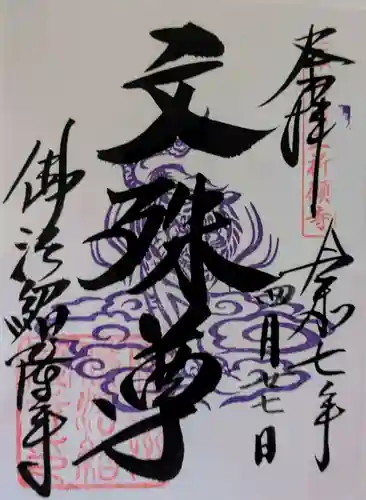 奉拝
令和七年
四月廿七日
文殊尊
佛法紹隆寺